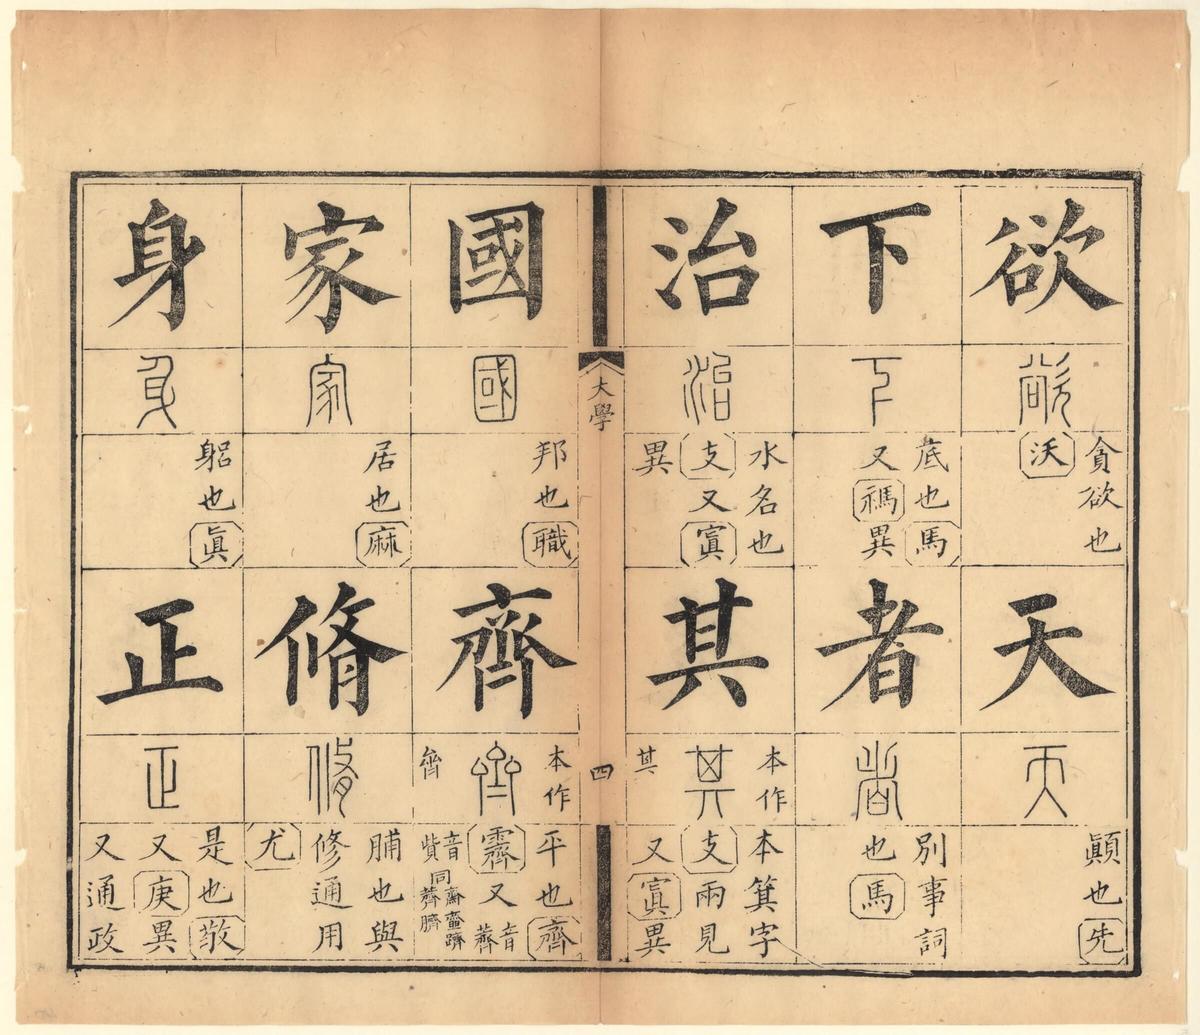 欲
欲
貪欲也
沃
天
天
顚也
先
下
下
底也馬
又禡異
者
者
別事詞
也馬
治
治
水名也
支又寘
異
其
本作
其
其
本箕字
支兩見
又寘異
大學
四
國
國
邦也職
齊
本作
齊
平也齊
霽又音薺
家
家
居也麻
脩
脩
脯也與
修通用
尤
身
身
躳也眞
正
正
是也敬
又庚異
又通政